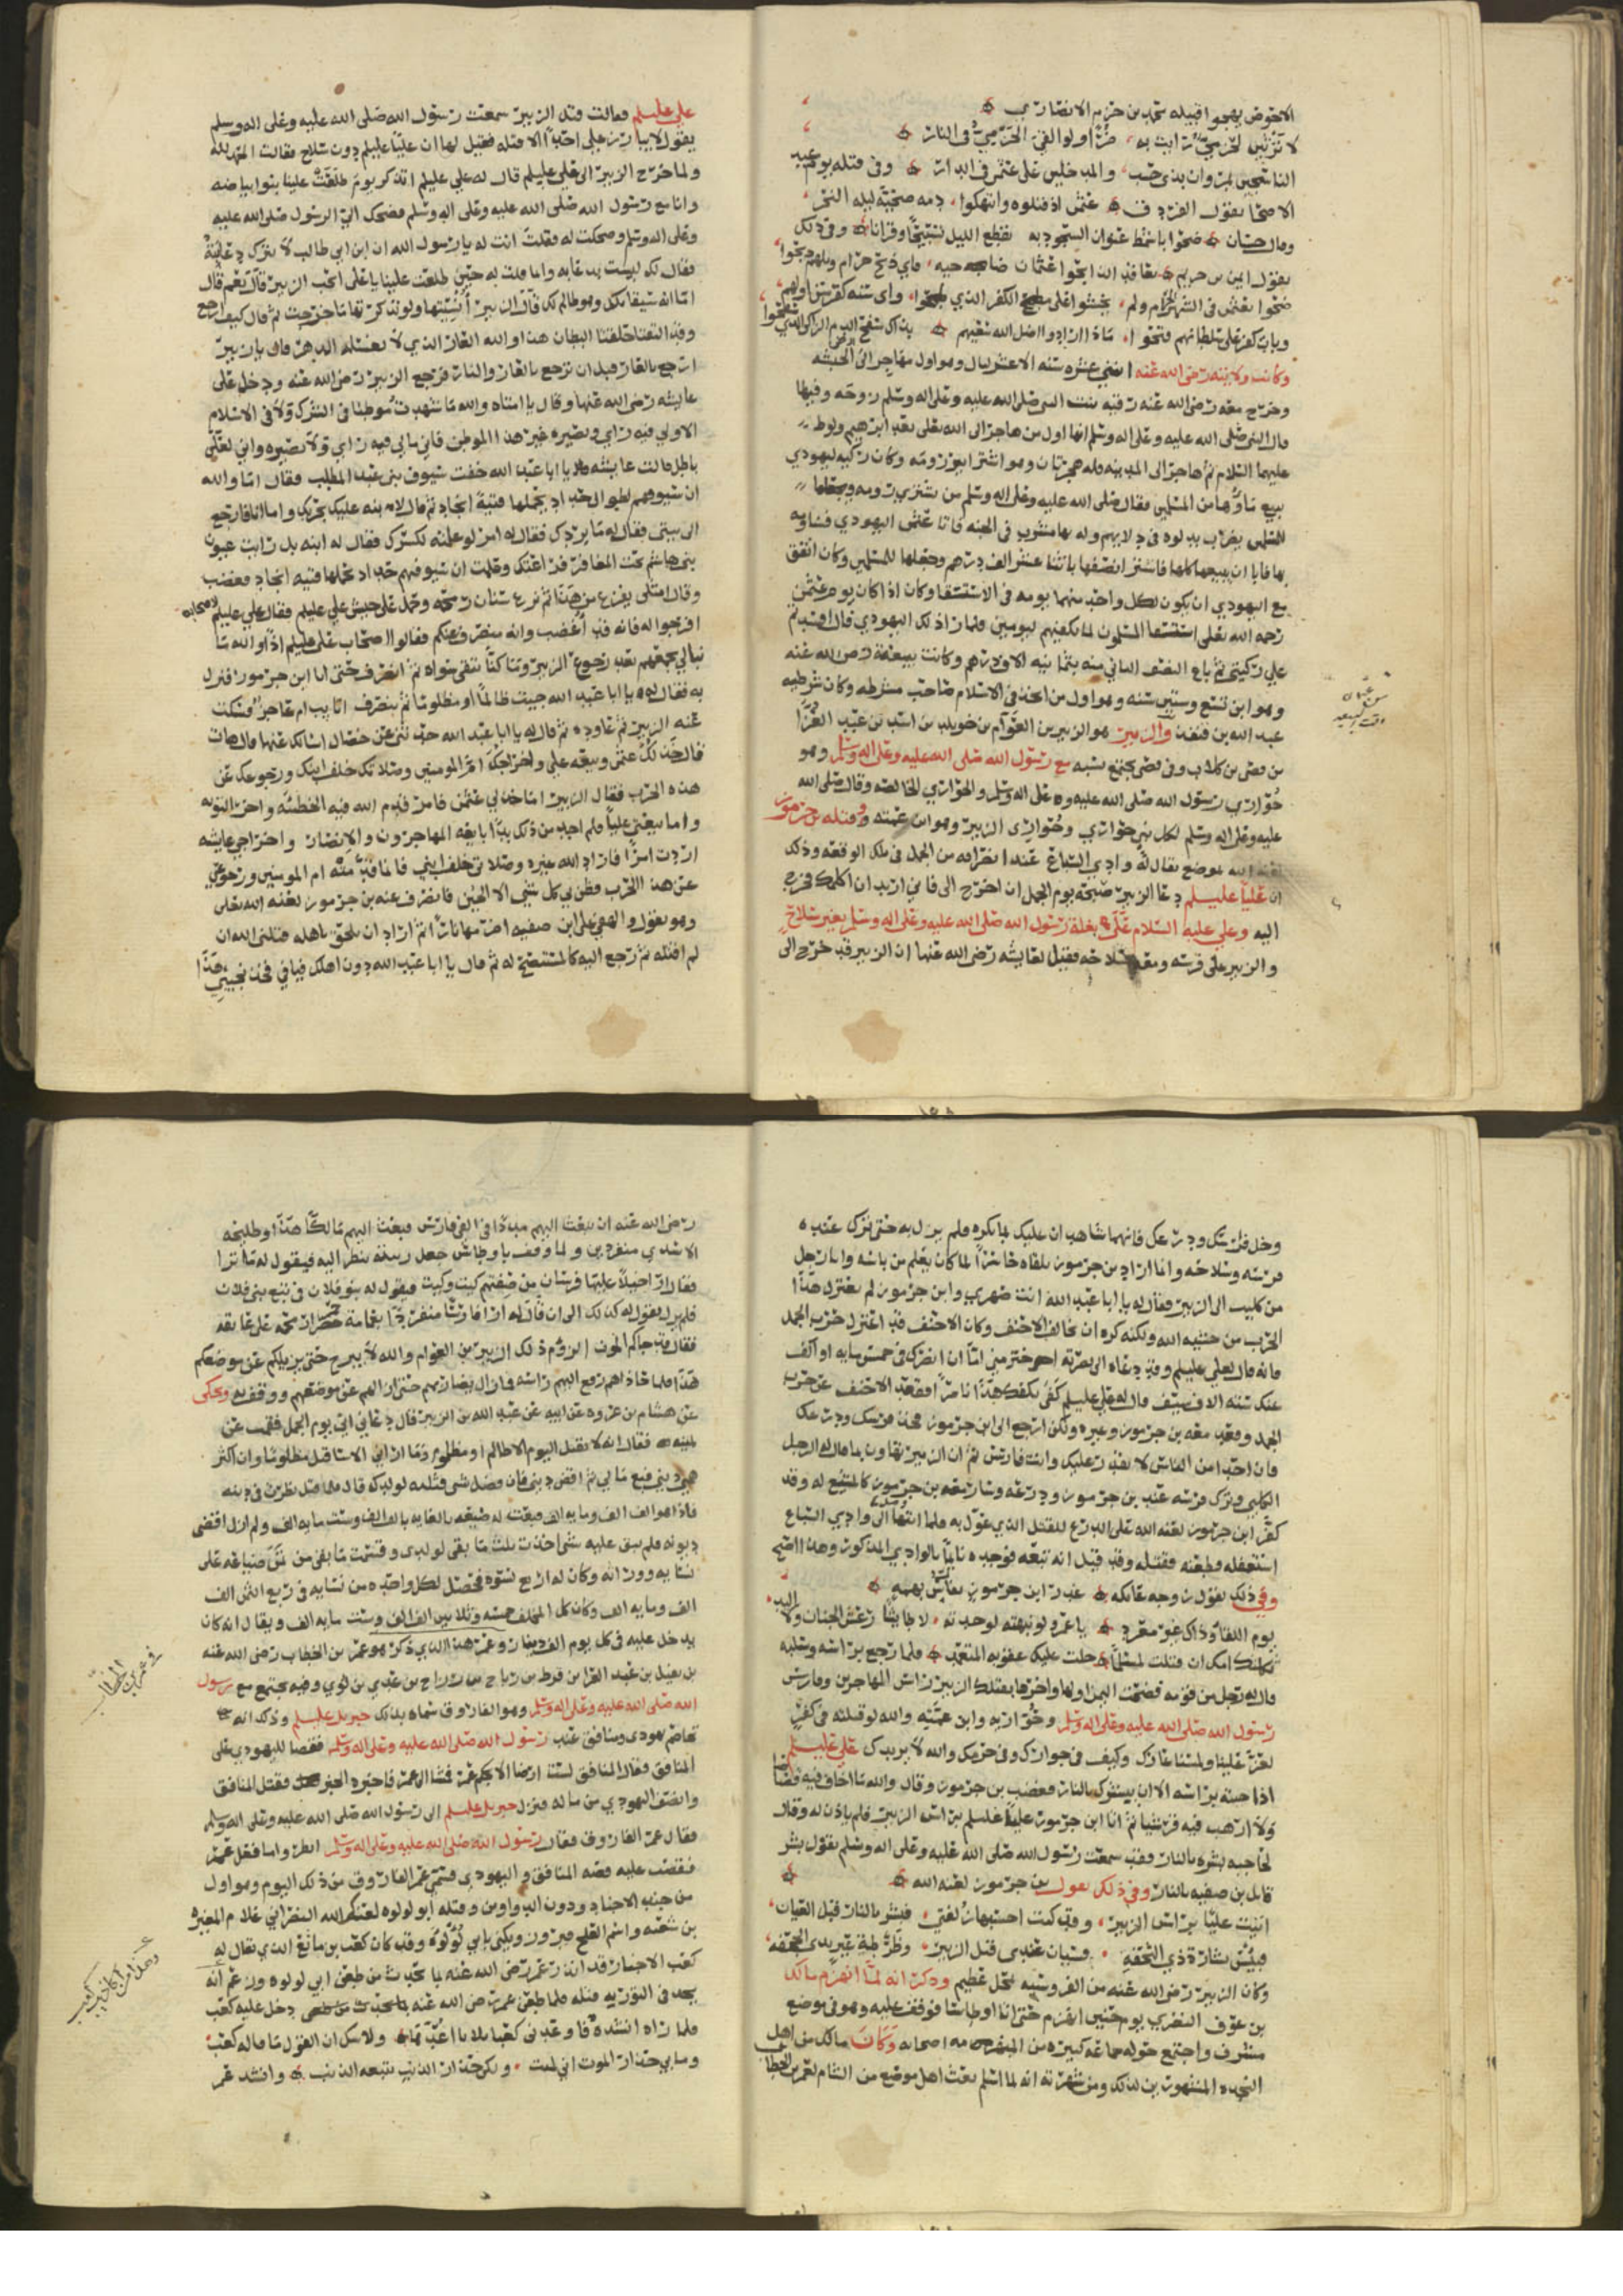 الاحوص يهجوا قبيله محمد بن حزم الانصاري
لا ترثين لحزمي رايت به ضرا ولو القي الحزمي في النار
الناخسين بمروان بذي خشب والمدخلين على عثمن في الدار وفي قتله يوم عيد
الاضحى يقول الفرزدق عثمن اذ قتلوه وانتهكوا دمه صبيحة ليلة النحر
وقال حسان ضحوا باشمط عنوان السجود به يقطع الليل تسبيحا وقرانا وفي ذلك
يقول ايمن بن خريم تعاقد الذابحوا عثمان ضاحيه فاي ذبح حرام ويلهم ذبحوا
ضحوا بعثمن في الشهر الحرام ولم يخشوا على مطمح الكفر الذي طمحوا واي سنة كفر سن اولهم
وباب كفر على سلطانهم فتحوا ماذا ارادوا اضل الله سعيهم بذاك سفح الدم الزاكي الذي سفحوا
وكانت ولايته رضي الله عنه اثنتي عشره سنه الا عشر ليال وهو اول مهاجر الى الحبشه
وخرج معه رضي الله عنه رقيه بنت النبي صلى الله عليه وعلى اله وسلم زوجه وفيها
قال النبي صلى الله عليه وعلى اله وسلم انها اول من هاجر الى الله تعالى بعد ابرهيم ولوط
عليهما السلام ثم هاجر الى المدينه فله هجرتان وهو اشترا بير رومه وكان ركيه ليهودي
يبيع ماؤها من المسلمين فقال صلى الله عليه وعلى اله وسلم من يشتري رومه ويجعلها
للمسلمين يضرب بدلوه في دلايهم وله بها مشرب في الجنه فاتا عثمن اليهودي فساومه
بها فابا ان يبيعها كلها فاشترا نصفها باثنا عشر الف درهم وجعلها للمسلمين وكان اتفق
مع اليهودي ان يكون لكل واحد منهما يومه في الاستسقا وكان اذا كان يوم عثمن
رحمه الله تعالى استسقا المسلمون لما يكفيهم ليومين فلما راذ لك اليهودي قال افسدتم
علي ركيتي ثم باع النصف الثاني منه بثمانيه الاف درهم وكانت بيعته رضي الله عنه
وهو ابن تسع وستين سنه وهو اول من اتخذ في الاسلام صاحب شرطه وكان شرطيه
عبد الله بن قنفذ والزبير هو الزبير بن العوام بن خويلد بن اسد بن عبد العزا
بن قصي بن كلاب وفي قصي يجتمع نسبه مع رسول الله صلى الله عليه وعلى اله وسلم وهو
حواري رسول الله صلى الله عليه وعلى اله وسلم والحواري الخالصه وقال صلى الله
عليه وعلى اله وسلم لكل نبي حواري وحواري الزبير وهو ابن عمته وقتله بن جرموز
لعنه الله بموضع يقال له وادي السباع عند انصرافه من الجمل في تلك الوقعه وذلك
ان عليا عليلم دعا الزبير صبحه يوم الجمل ان اخرج الى فاني اريد ان اكلمك فخرج
اليه وعلي عليه السلام على بغلة رسول الله صلى الله عليه وعلى اله وسلم بغير سلاح
والزبير على فرسه ومعه سلاحه فقيل لعايشه رضي الله عنها ان الزبير قد خرج الى
علي عليلم فقالت قتل الزبير سمعت رسول الله صلى الله عليه وعلى اله وسلم
يقول لا يبارز علي احدا الا قتله فقيل لها ان عليا عليلم دون سلاح فقالت الحمد لله
ولما خرج الزبير الى علي عليلم قال له علي عليلم اتذكر يوم طلعت علينا بنوا بياضه
وانا مع رسول الله صلى الله عليه وعلى اله وسلم فضحك الي الرسول صلى الله عليه
وعلى اله وسلم وضحكت له فقلت انت له يا رسول الله ان ابن ابي طالب لا يترك دعابته
فقال لك ليست بدعابه واما قلت له حين طلعت علينا يا علي اتحب الزبير قال نعم قال
اما انه سيقاتلك وهو ظالم لك قال الزبير انسيتها ولو تذكرتها ما خرجت ثم قال كيف ارجع
وقد التقتا حلقتا البطان هذا والله العار الذي لا يغسله الدهر قال يا زبير
ارجع بالعار قبل ان ترجع بالعار والنار فرجع الزبير رضي الله عنه ودخل على
عايشه رضي الله عنها وقال يا امتاه والله ما شهدت موطنا في الشرك ولا في الاسلام
الا ولي فيه راي وبصيره غير هذا الموطن فاني ما لي فيه راي ولا بصيره واني لعلى
باطل قالت عايشه يا ابا عبد الله خفت سيوف بني عبد المطلب فقال اما والله
ان سيوفهم لطوال حداد يحملها فتية انجاد ثم قال لابنه عليك بحربك واما انا فارجع
الى بيتي فقال له ما يردك فقال له امر لو علمته لكسرك فقال له ابنه بل رايت عيون
بني هاشم تحت المغافر قد راعتك وعلمت ان سيوفهم حداد تحملها فتيه انجاد فغضب
وقال امثلي يفزع من هذا ثم نزع سنان رمحه وحمل على جيش علي عليلم فقال علي عليلم لاصحابه
افرجوا له فانه قد اغضب وانه منصرف عنكم فقالوا اصحاب علي عليلم اذا والله ما
نبالي بجمعهم بعد رجوع الزبير وما كنا نتقي سواه ثم انصرف حتى اتا ابن جرموز فنزل
به فقال له يا ابا عبد الله جيت ظالما او مظلوما ثم تنصرف اتايب ام عاجز فسكت
عنه الزبير ثم عاوده ثم قال له يا ابا عبد الله حدثني عن خصال اسالك عنها قال هات
قال خذلك عثمن وبيعته علي واخراجك ام المومنين وصلاتك خلف ابنك ورجوعك عن
هذه الحرب فقال الزبير اما خذلي عثمن فامر قدم الله فيه الخطئه واخر التوبه
واما بيعتي عليا فلم اجد من ذلك بدا بايعه المهاجرون والانصار واخراجي عايشه
اردت امرا فاراد الله غيره وصلاتي خلف ابني فانما قدمته ام المومنين ورجوعي
عن هذا الحرب فظن بي كل شي الا الجبن فانصرف عنه بن جرموز لعنه الله تعالى
وهو يقول والهفي على ابن صفيه اضرمها نارا ثم اراد ان يلحق باهله قتلني الله ان
لم اقتله ثم رجع اليه كالمستنصح له ثم قال يا ابا عبد الله دون اهلك فيافي فخذ نجيبي هذا
وخل فرسك ودرعك فانهما شاهدان عليك بما يكره فلم يزل به حتى ترك عنده
فرسه وسلاحه وانما اراد بن جرموز يلقاه حاسرا لما كان يعلم من باسه واتا رجل
من كليب الى الزبير فقال له يا ابا عبد الله انت صهري وابن جرموز لم يعتزل هذا
الحرب من خشيه الله ولكنه كره ان يخالف الاحنف وكان الاحنف قد اعتزل حرب الجمل
فانه قال لعلي عليلم وقد دعاه الى نصرته اختر مني اما ان انصرك في خمس مايه او اكف
عنك ستة الاف سيف قال له علي عليلم كفى بكفك هذا ناصرا فقعد الاحنف عن حرب
الجمل وقعد معه بن جرموز وغيره ولكن ارجع الى ابن جرموز فخذ فرسك ودرعك
فان احدا من الناس لا يقدر عليك وانت فارس ثم ان الزبير تهاون بما قال له الرجل
الكليبي وترك فرسه عند بن جرموز ودرعه وسار معه بن جرموز كالمشيع له وقد
كفر ابن جرموز لعنه الله على الدرع للقتل الذي عول به فلما انتها الى وادي السباع
استغفله وطعنه فقتله وقد قيل انه تبعه فوجده نايما بالوادي المذكور وهذا الصحيح
وفي ذلك يقول زوجه عاتكه غدر ابن جرموز بفارس بهمه
يوم اللقا وذاك غير معرد يا عمرو لو نبهته لوجدته لا طايشا رعش الجنان ولا اليد
ثكلتك امك ان قتلت لمسلما حلت عليك عقوبه المتعمد فلما رجع براسه وسلبه
قال له رجل من قومه فضحت اليمن اولها واخرها بقتلك الزبير راس المهاجرين وفارس
رسول الله صلى الله عليه وعلى اله وسلم وحواريه وابن عمته والله لو قتلته في
لعزت علينا ولمسنا عارك وكيف في جوارك وفي حرمك والله لا يريدك علي عليلم
اذا جيته براسه الا ان يبشرك بالنار فغضب بن جرموز وقال والله ما اخاف فيه قصاصا
ولا ارهب فيه قريشا ثم اتا ابن جرموز عليا عليلم براس الزبير فلم ياذن له وقال
لحاجبه بشره بالنار وقد سمعت رسول الله صلى الله عليه وعلى اله وسلم يقول بشر
قاتل بن صفيه بالنار وفي ذلك يقول بن جرموز لعنه الله
اتيت عليا براس الزبير وقد كنت احسبها زلفتي فبشر بالنار قبل العيان
فبئس بشارة ذي التحفه وسيان عندي قتل الزبير وضرطة عير بذي الجحفه
وكان الزبير رضي الله عنه من الفروسيه بمحل عظيم وذكر انه لما انهزم مالك
بن عوف النصري يوم حنين انهزم حتى اتا اوطاسا فوقف عليه وهو في موضع
مشرف واجتمع حوله جماعه كبيره من المنهزمه من اصحابه وكان مالك من اهل
النجده المشهورين بذلك ومن شهرته انه لما اسلم بعث اهل موضع من الشام لعمر بن الخطاب
رضي الله عنه ان يبعث اليهم مددا في الفي فارس فبعث اليهم مالكا هذا وطليحه
الاسدي منفردين ولما وقف باوطاس جعل ربيئة ينظر اليه فيقول له ما ترا
فقال ارا خيلا عليها فرسان من صفتهم كيت وكيت فيقول له بنو فلان
فلم يزل يقول له كذلك الى ان قال له ارا فارسا منفردا بعمامة حمرا رمحه على عاتقه
فقال قد جاكم الموت الزوم ذلك الزبير بن العوام والله لا يبرح حتى يزيلكم عن موضعكم
هذا فلما حاذاهم رفع اليهم راسه فما زال يضاربهم حتى ازالهم عن موضعهم ووقف به وحكى
عن هشام بن عروه عن ابيه عن عبد الله بن الزبير قال دعاني ابي يوم الجمل فقمت عن
يمينه فقال انه لا يقتل اليوم الا ظالم او مظلوم وما اراني الا ساقتل مظلوما وان اكثر
همي ديني فبع مالي ثم اقض ديني فان فضل شي فثلثه لولدك قال فلما قتل نظرت في دينه
فاذا هو الف الف ومايه الف فبعت له ضيعه بالغابه بالف الف وست مايه الف ولم ازل اقضي
ديونه فلم يبق عليه شي اخذت ثلث ما بقى لولدي وقسمت ما بقى من ثمن ضياعه على
نسايه وورثاته وكان له اربع نسوه فحصل لكل واحده من نسايه في ربع الثمن الف
الف ومايه الف وكان كل المخلف خمسه وثلاثين الف الف وست مايه الف ويقال انه كان
يدخل عليه في كل يوم الف دينار وعمر هذا الذي ذكر هو عمر بن الخطاب رضي الله عنه
بن نفيل بن عبد العزا بن قرط بن رياح بن رزاح بن عدي بن لوي وفيه يجتمع مع رسول
الله صلى الله عليه وعلى اله وسلم وهو الفاروق سماه بذلك جبريل عليلم وذلك انه
تخاصم يهودي ومنافق عند رسول الله صلى الله عليه وعلى اله وسلم فقضا لليهودي على
المنافق وقال المنافق لست ارضا الا بحكم عمر فمشا الى عمر فاخبره الخبر فقتل المنافق
وانصف اليهودي من ماله فنزل جبريل عليلم الى رسول الله صلى الله عليه وعلى اله وسلم
فقال عمر الفاروق فقال رسول الله صلى الله عليه وعلى اله وسلم انظروا ما فعل عمر
فقصت عليه قصه المنافق واليهودي فسمي عمر الفاروق من ذلك اليوم وهو اول
من جند الاجناد ودون الدواوين وقتله ابو لولوه لعنه الله النصراني غلام المغيره
بن شعبه واسم العلج فيروز ويكنى بابي لولوة وقد كان كعب بن ماتع الذي يقال له
كعب الاحبار قد انذر عمر رضي الله عنه بما يحدث من طعن ابي لولوه وزعم انه
يجد في التوريه قتله فلما طعن عمر رضي الله عنه دخل عليه كعب
فلما راه انشده فاوعدني كعب ثلاثا اعدها ولا شك ان القول ما قاله كعب
وما بي حذار الموت اني لميت ولكن حذار الذنب يتبعه الذنب وانشد عمر